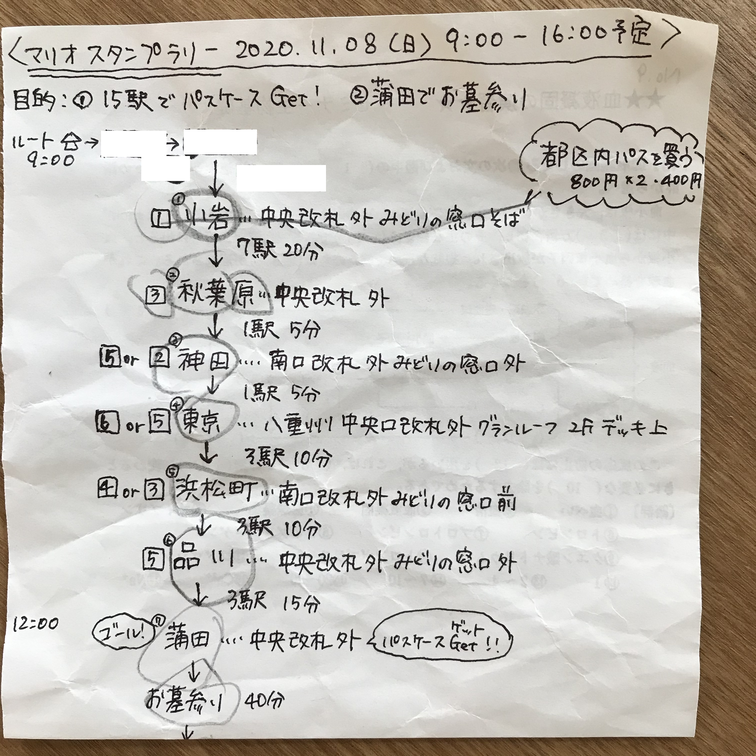 〈マリオスタンプラリー 2020.11.08(日) 9:00-16:00予定〉
目的:① 15駅でパスケースGet! ②蒲田でお墓参り
ルート
9:00
都区内パスを買う
800円×2.400円
① 1 小岩…中央改札外みどりの窓口そば
7駅 20分
② 3 秋葉原…中央改札外
1駅 5分
③ 5 or 2 神田…南口改札外みどりの窓口外
1駅 5分
④ 6 or 5 東京…八重洲中央口改札外グランルーフ 2Fデッキ上
3駅 10分
⑤ 4 or 3 浜松町…南口改札外みどりの窓口前
3駅 10分
⑥ 5 品川…中央改札外みどりの窓口外
3駅 15分
12:00
ゴール! ⑦ 蒲田…中央改札外 パスケースGet!! ゲット
お墓参り 40分